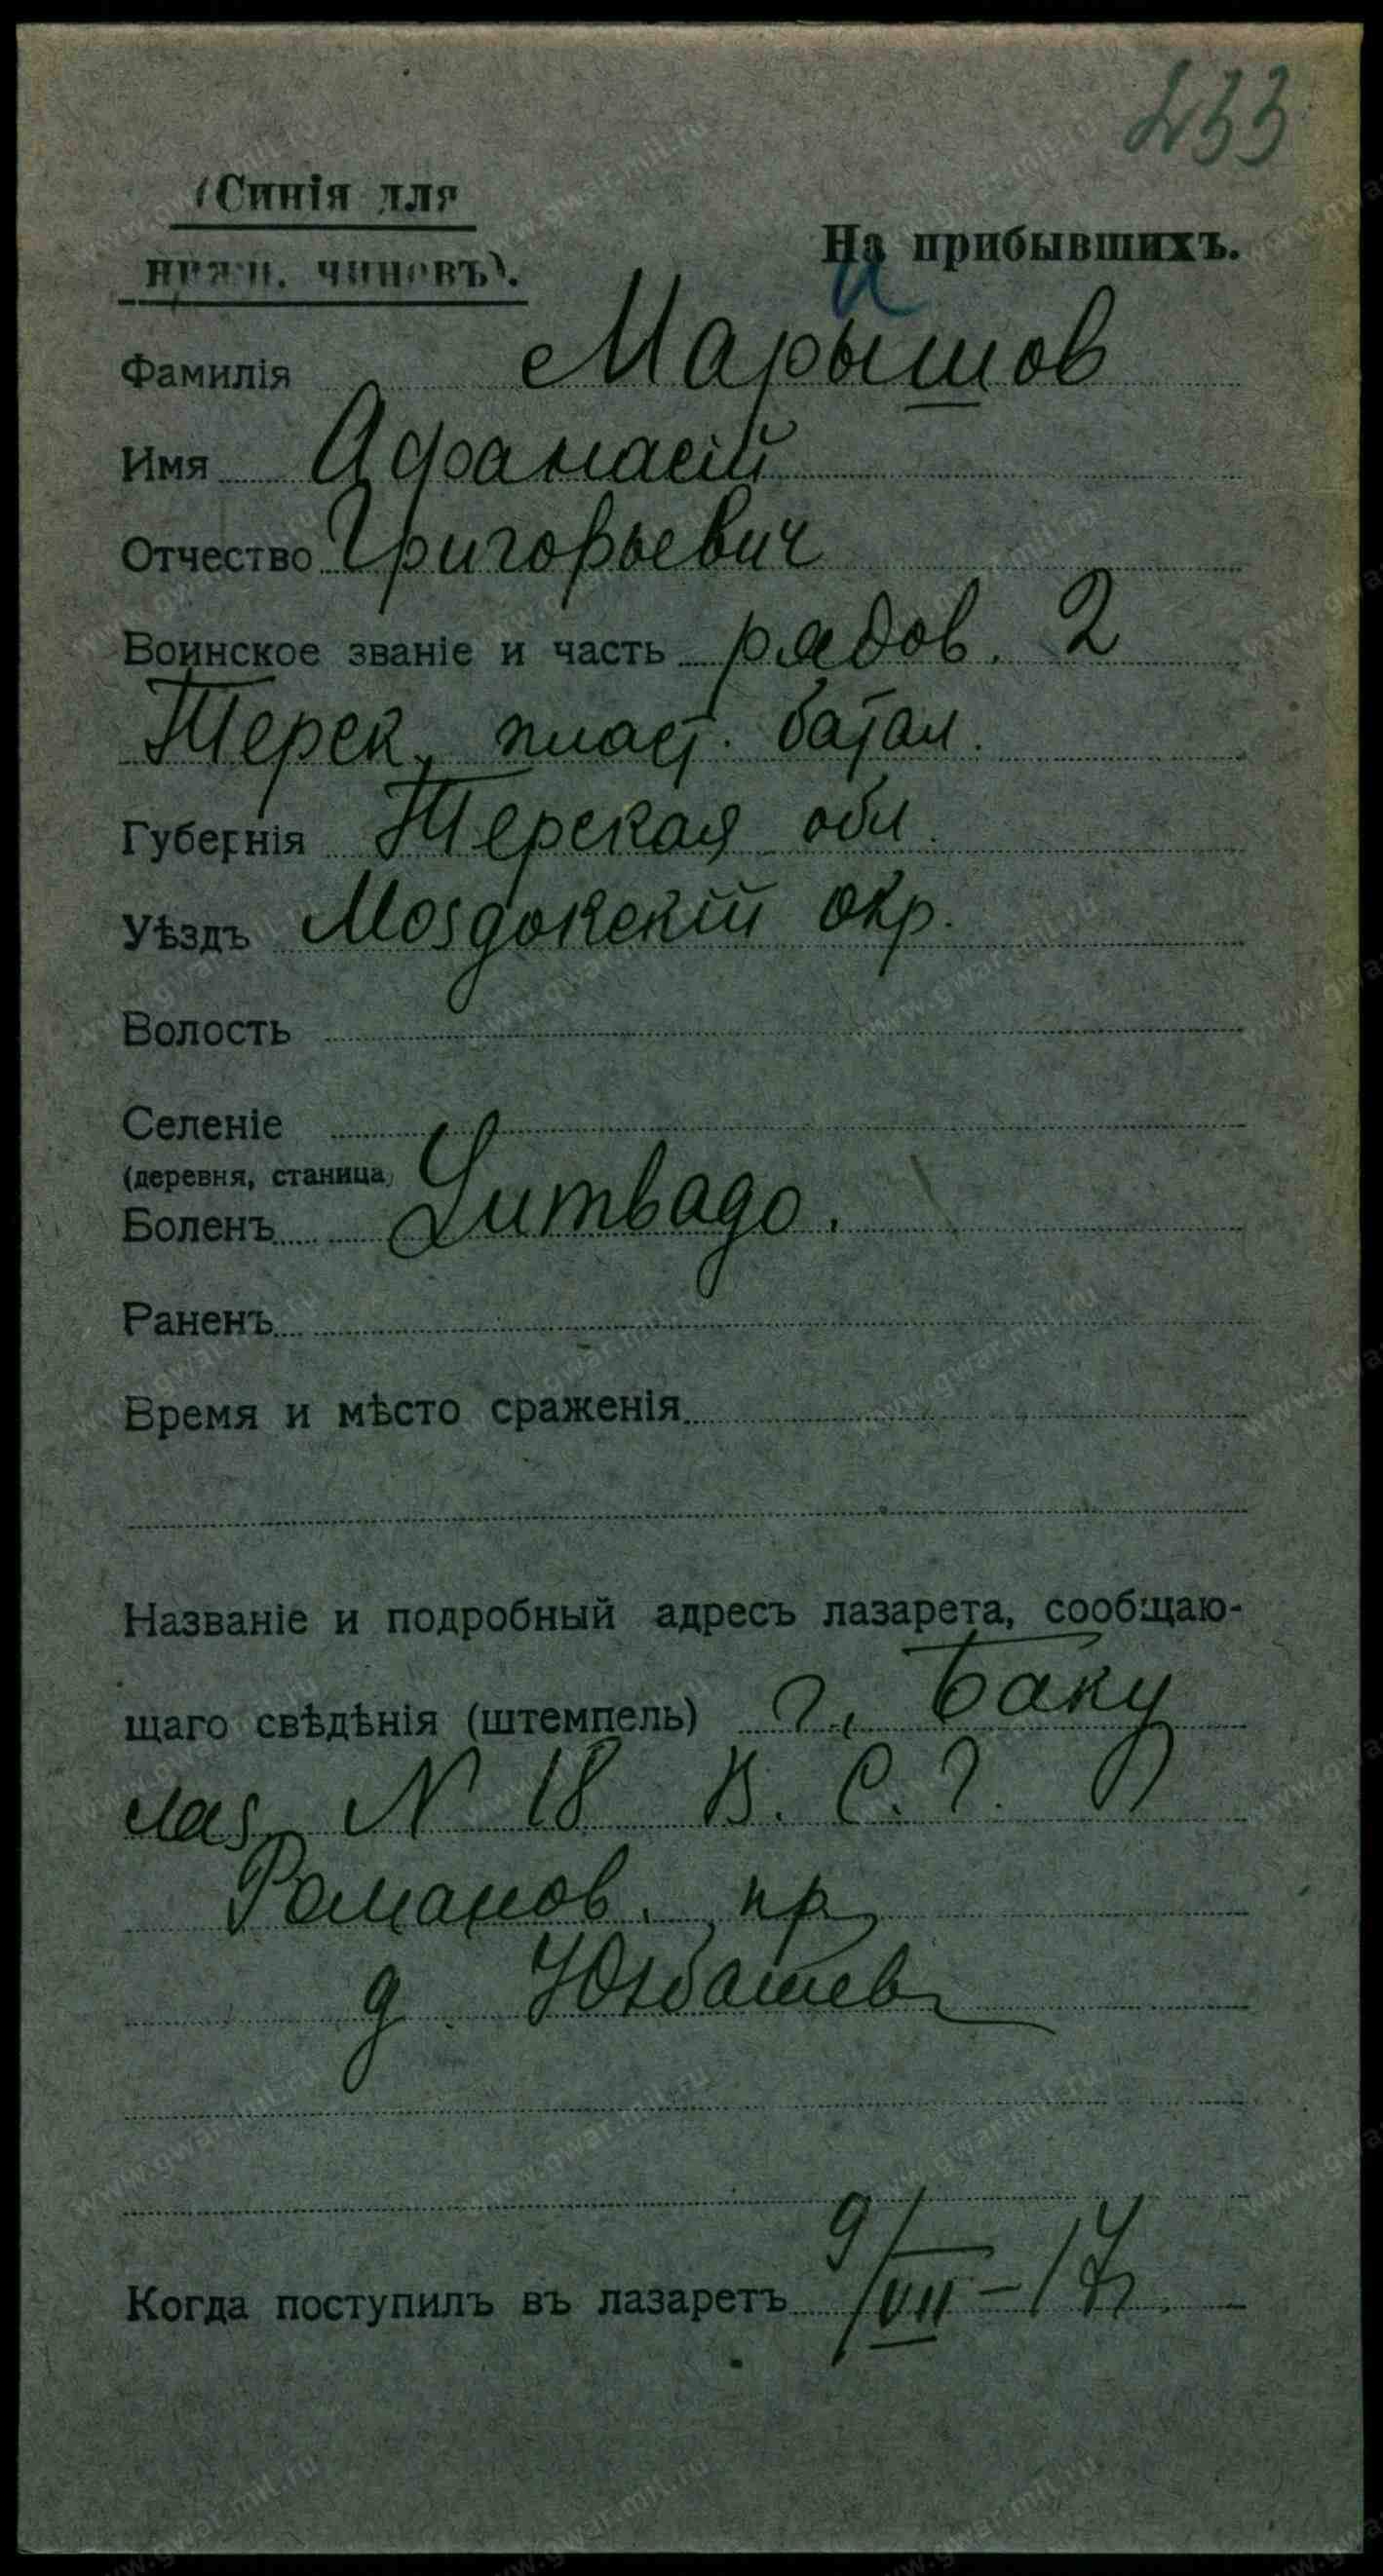 233
(Синія для
нижн. чиновъ).
На прибывшихъ.
и
Фамилія Марышов
Имя Афанасій
Отчество Григорьевич
Воинское званіе и часть рядов. 2
Терек. пласт. батал.
Губернія Терская обл.
Уѣздъ Моздокскій окр.
Волость
Селеніе
(деревня, станица)
Боленъ Lumbago.
Раненъ
Время и мѣсто сраженія
Названіе и подробный адресъ лазарета, сообщаю-
щаго свѣдѣнія (штемпель) г. Баку
лаз. N 18 В. С. Г.
Романов. пр.
д. Юзбашев
Когда поступилъ въ лазаретъ 9/VII – 17 г.